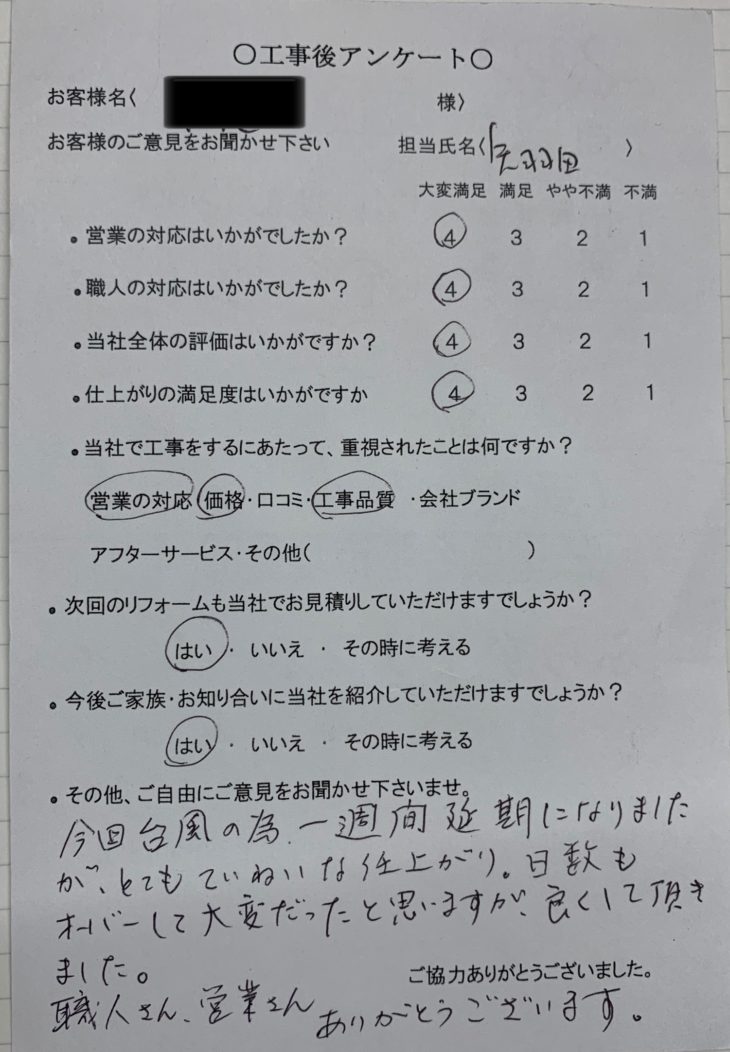 ○工事後アンケート○
お客様名〈 様〉
お客様のご意見をお聞かせ下さい 担当氏名〈矢羽田 〉
大変満足 満足 やや不満 不満
・営業の対応はいかがでしたか？ 4 3 2 1
・職人の対応はいかがでしたか？ 4 3 2 1
・当社全体の評価はいかがですか？ 4 3 2 1
・仕上がりの満足度はいかがですか 4 3 2 1
・当社で工事をするにあたって、重視されたことは何ですか？
営業の対応・価格・口コミ・工事品質 ・会社ブランド
アフターサービス・その他( )
・次回のリフォームも当社でお見積りしていただけますでしょうか？
はい ・ いいえ ・ その時に考える
・今後ご家族・お知り合いに当社を紹介していただけますでしょうか？
はい ・ いいえ ・ その時に考える
・その他、ご自由にご意見をお聞かせ下さいませ。
今回台風の為、一週間延期になりました
が、とてもていねいな仕上がり。日数も
オーバーして大変だったと思いますが、良くして頂き
ました。
ご協力ありがとうございました。
職人さん、営業さん ありがとうございます。